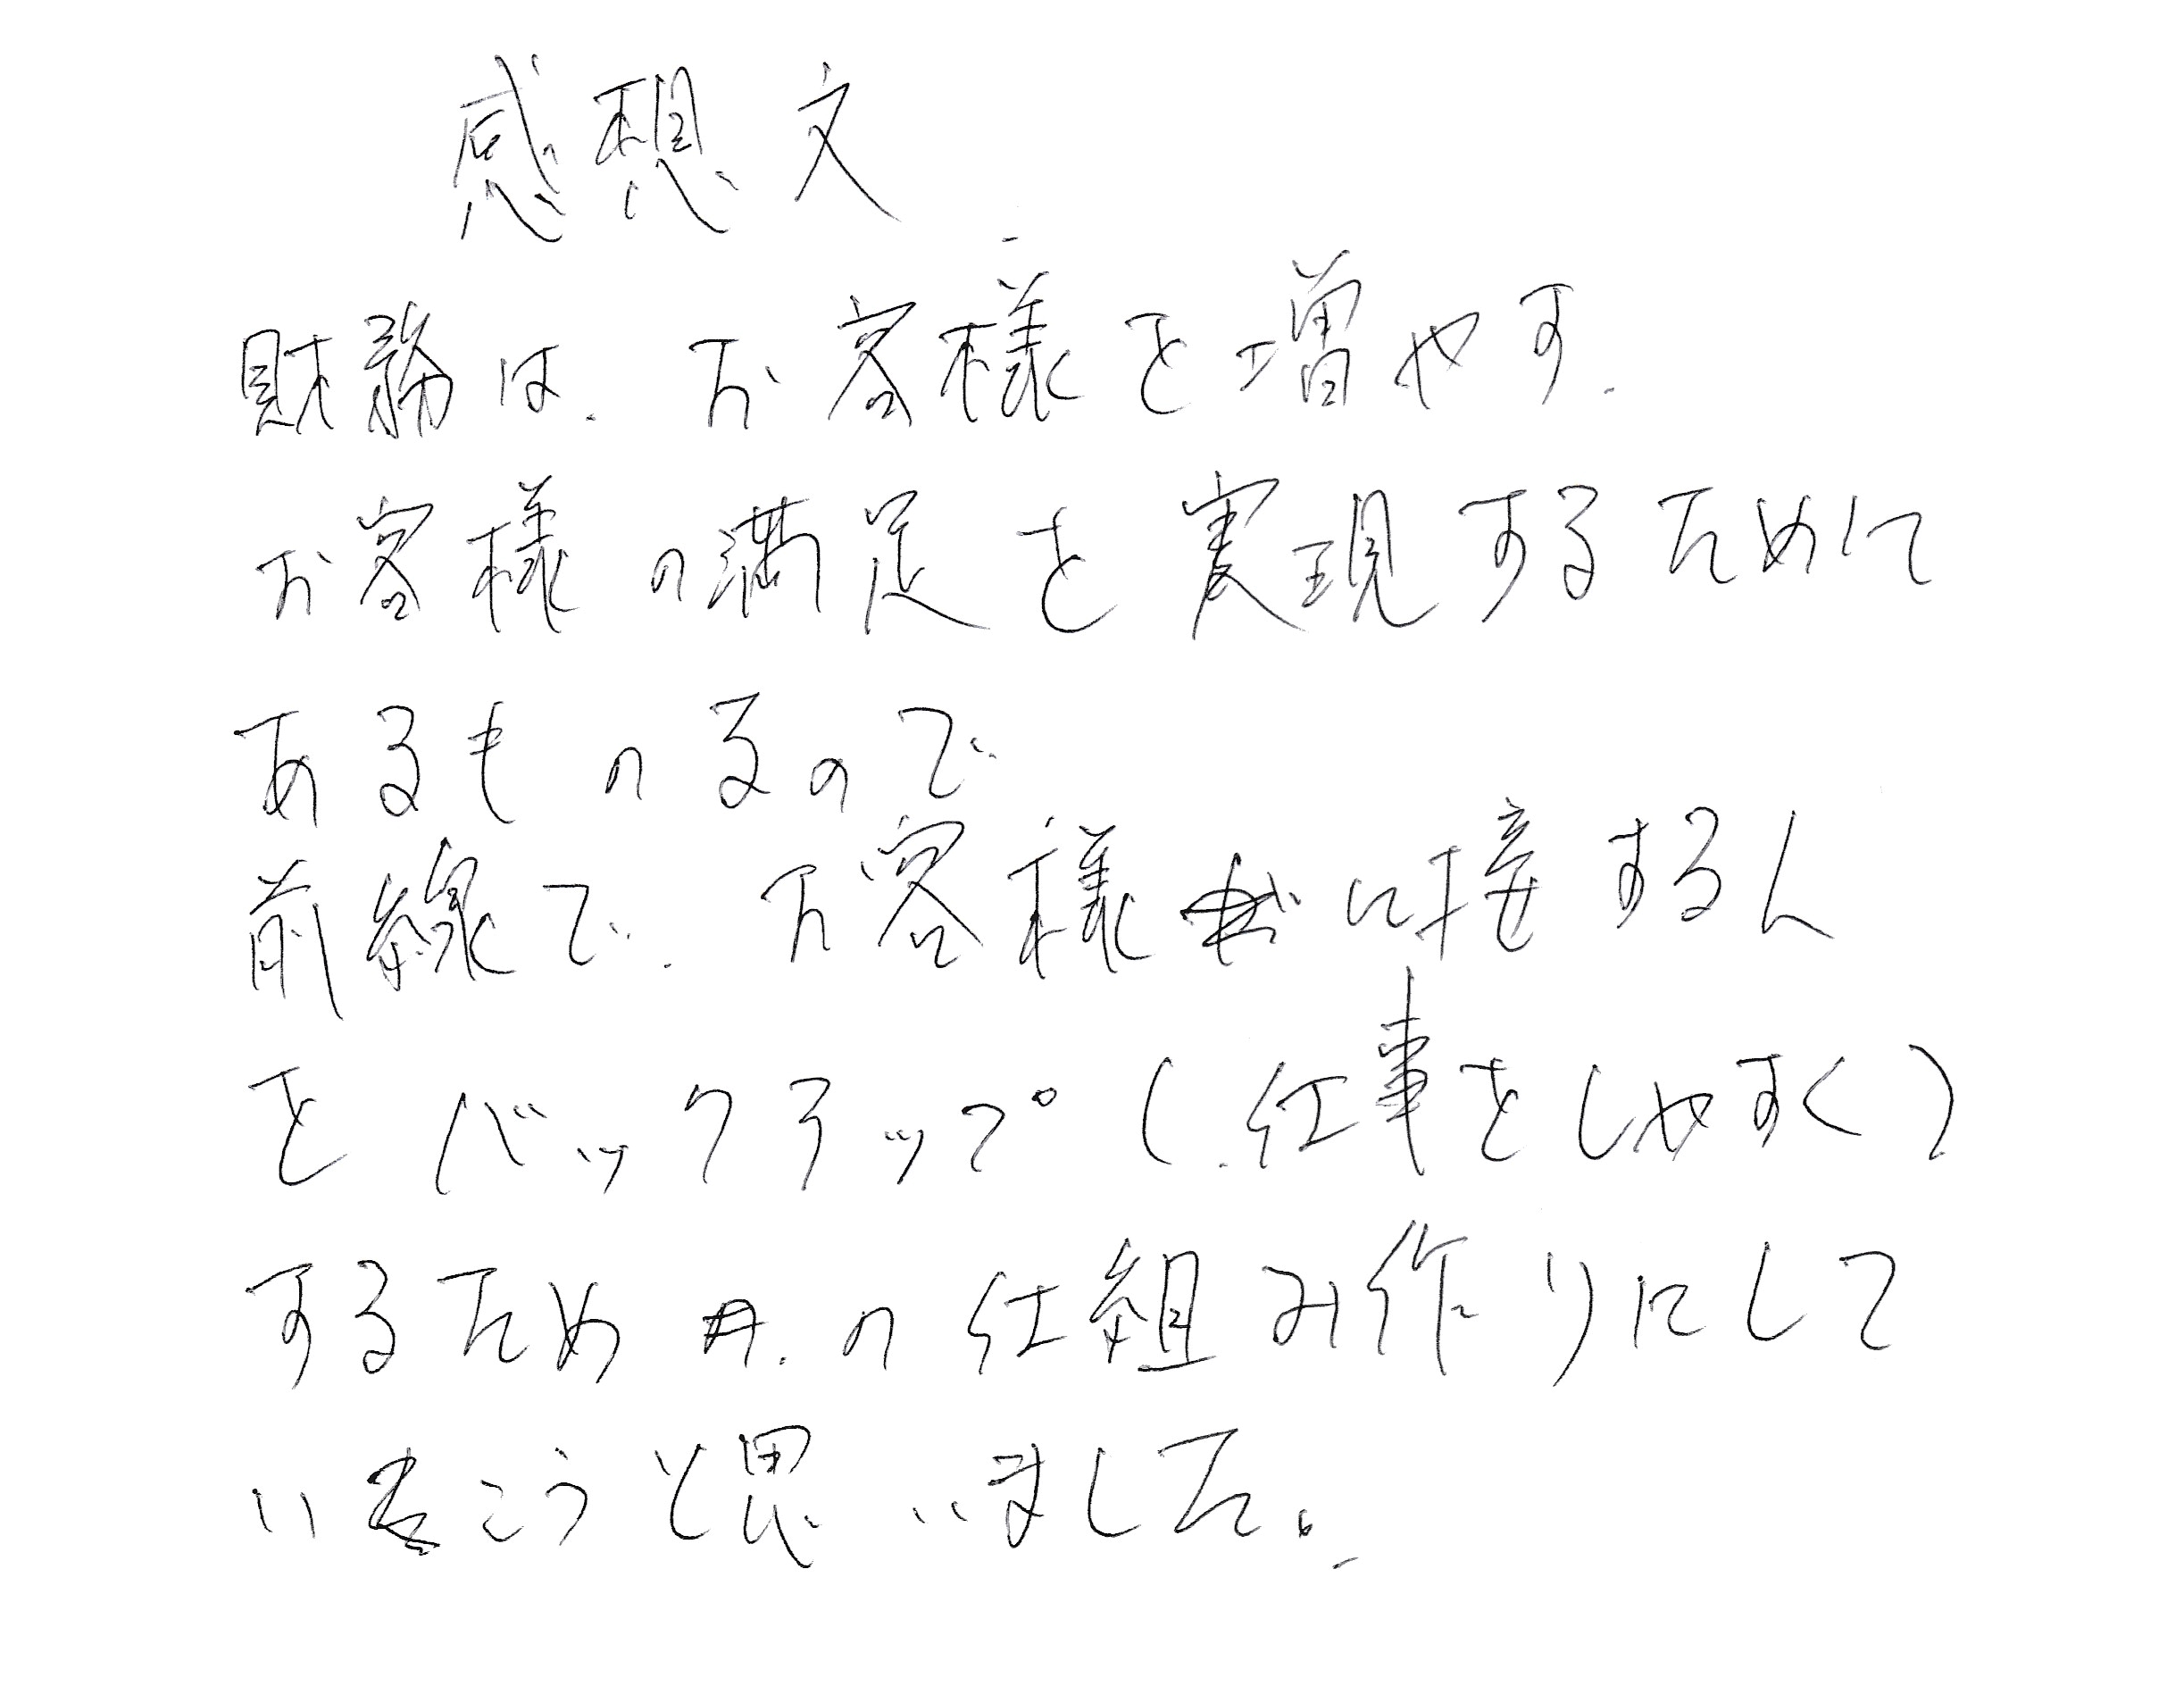 感想文
財務は、お客様を増やす、
お客様の満足を実現するために
あるものるので
前線で、お客様に接する人
をバックアップ(仕事をしやすく)
するための仕組み作りにして
いこうと思いました。